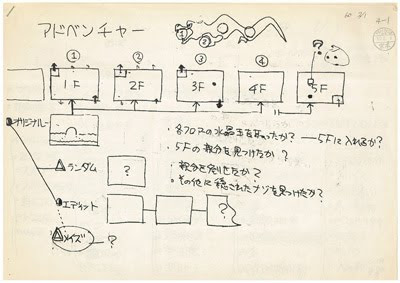 60 3/1
4-1
アドベンチャー
① ② ③ ④ ⑤
① ②
?
1F 2F 3F 4F 5F
オリジナル
・各フロアの水晶玉をとったか? 5Fに入れるか?
・5Fの親分を見つけたか?
・親分を倒せたか?
・その他に隠されたナゾを見つけたか?
ランダム ?
エディット ?
メイズ ?